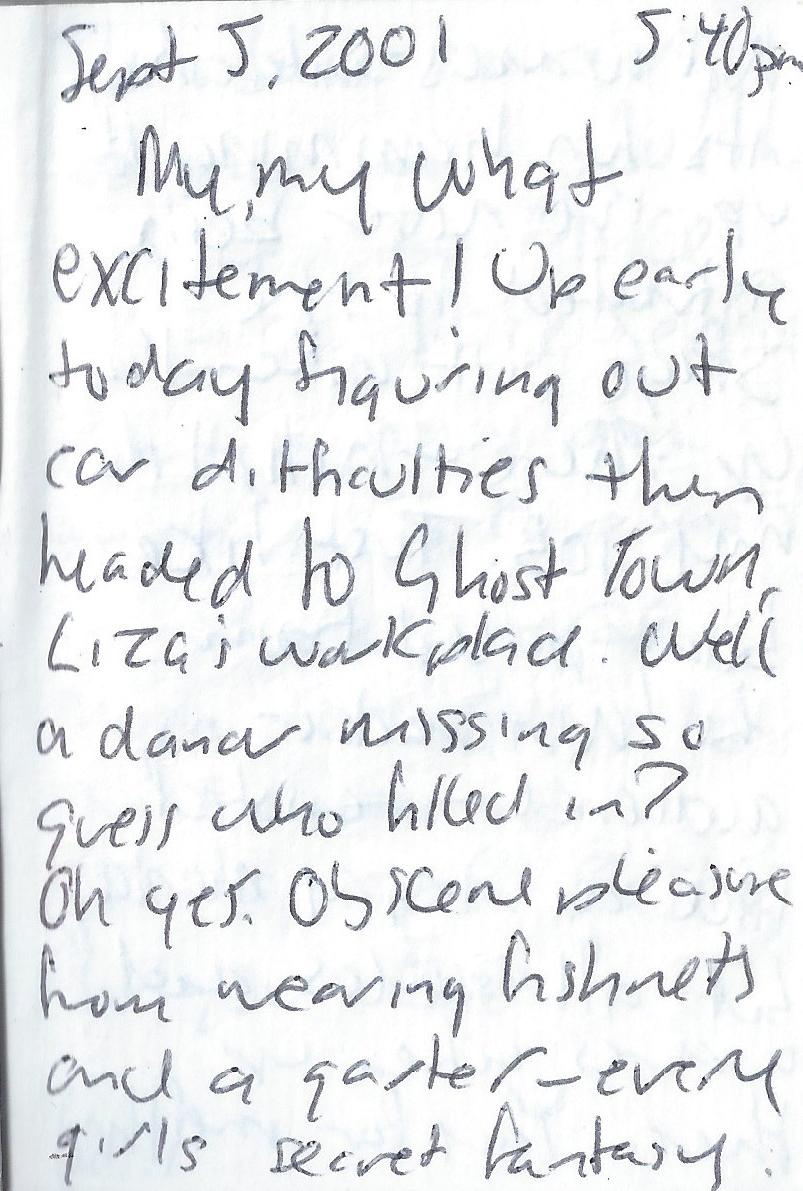 Sept 5, 2001 5:40pm
My, my what
excitement! Up early
today figuring out
car difficulties then
headed to Ghost Town,
Liza's workplace. Well
a dancer missing so
guess who filled in?
Oh yes. Obscene pleasure
from wearing fishnets
and a garter-every
girls secret fantasy.